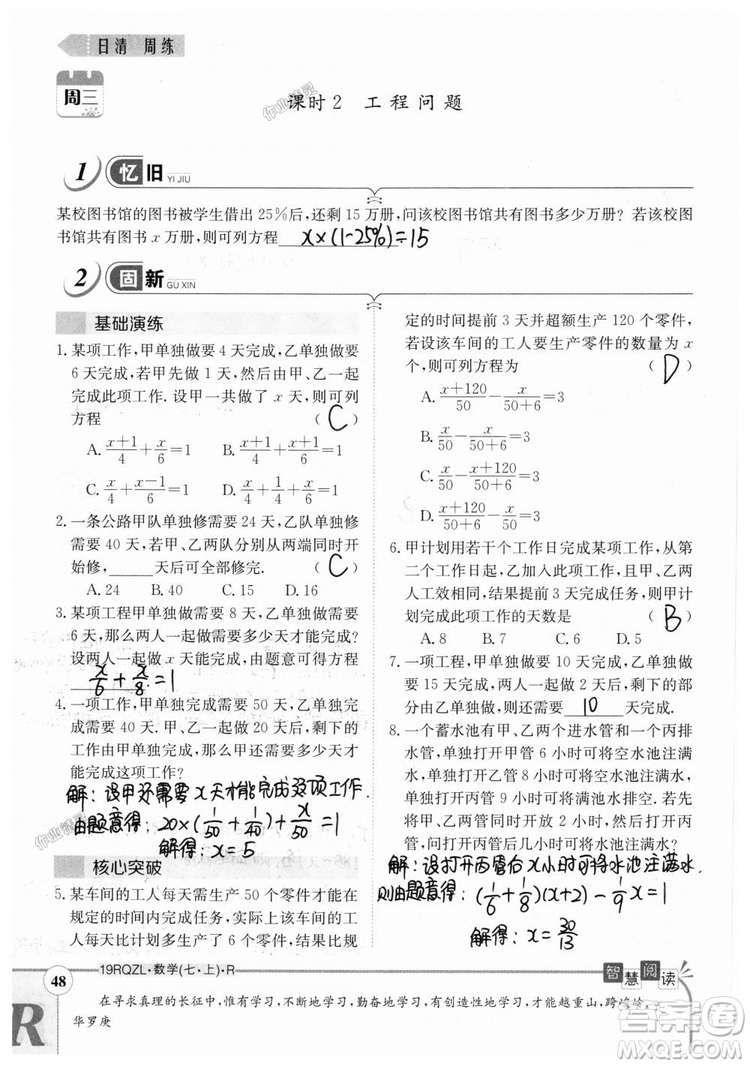 日清 周练
周三
课时2 工程问题
1 忆旧 YI JIU
某校图书馆的图书被学生借出25%后,还剩15万册,问该校图书馆共有图书多少万册?若该校图
书馆共有图书x万册,则可列方程 x×(1-25%)=15
2 固新 GU XIN
基础演练
1. 某项工作,甲单独做要4天完成,乙单独做要
6天完成,若甲先做1天,然后甲、乙一起
完成此项工作.设甲一共做了x天,则可列
方程 (C)
A. (x+1)/4+x/6=1 B. x/4+(x+1)/6=1
C. x/4+(x-1)/6=1 D. x/4+1/4+x/6=1
2. 一条公路甲队单独修需要24天,乙队单独修
需要40天,甲、乙两队分别从两端同时开
始修,____天可全部修完. (C)
A. 24 B. 40 C. 15 D. 16
3. 某项工程甲单独做需要8天,乙单独做需要
6天,那么两人一起做需要多少天才能完成?
设两人一起做x天能完成,由题意可得方程
x/6+x/8=1
4. 一项工作,甲单独完成需要50天,乙单独完
成需要40天.甲、乙一起做20天后,剩下的
工作由甲单独做,那么甲还需要多少天才
能完成这项工作?
解:设甲还需要x天才能完成这项工作.
由题意得:20×(1/50+1/40)+x/50=1
解得:x=5
核心突破
5. 某车间的工人每天需生产50个零件才能在
规定的时间内完成任务,实际上该车间的工
人每天比计划多生产了6个零件,结果比规
定的时间提前3天并超额生产120个零件,
若设该车间的工人要生产零件的数量为x
个,则可列方程为 (D)
A. (x+120)/50-x/(50+6)=3
B. x/50-x/(50+6)=3
C. x/50-(x+120)/(50+6)=3
D. (x+120)/(50+6)-x/50=3
6. 甲计划用若干个工作日完成某项工作,从第
二个工作日起,乙加入此项工作,且甲、乙两
人工效相同,结果提前3天完成任务,则甲计
划完成此项工作的天数是 (B)
A. 8 B. 7 C. 6 D. 5
7. 一项工程,甲单独做需12天完成,乙单独做
需15天完成,甲先做3天后,剩下的部分由
乙单独做,则还需要 10 天完成.
8. 一个蓄水池有甲、乙两个进水管和一个丙排
水管,单独打开甲管6小时可将空水池注满
水,单独打开乙管8小时可将空水池注满水,
单独打开丙管9小时可将满池水排完.若先
将甲、乙两管同时打开2小时,然后打开丙
管,问打开丙管后几小时可将水池注满水?
解:设打开丙管后x小时可将水池注满水.
则由题意得:(1/6+1/8)(x+2)-1/9x=1
解得:x=30/13
48
19RQZL·数学(七·上)·R
智慧阅读
在寻求真理的长征中,惟有学习,不断地学习,勤奋地学习,有创造性地学习,才能越重山,跨峻岭.
华罗庚
R
作业精灵
作业精灵
答案圈
MXQE.COM